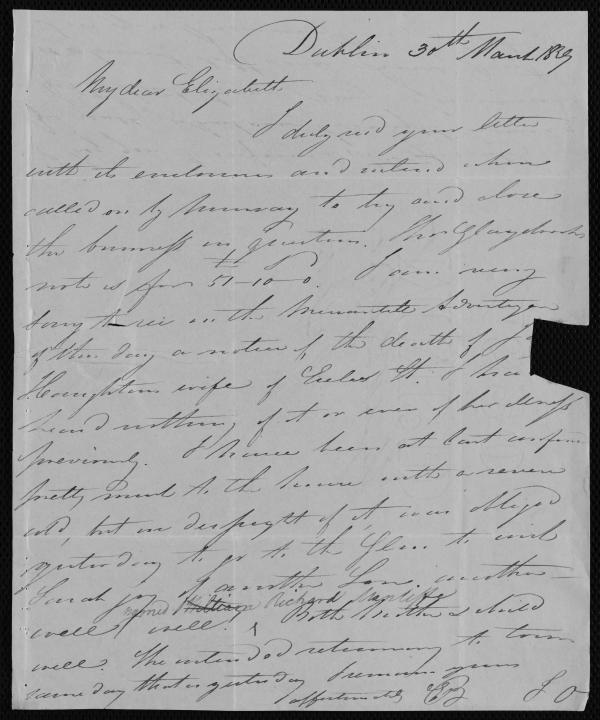 Dublin 30th March 1839
My dear Elizabeth
I duly recd your letter
with its enclosures and intend when
called on by to try and close
the business in question. Thos
note is for 51-10-0. I am very
sorry to see in the Mercantile Advertizer
of this day a notice of the death of
Haughtons wife of Eccles St. I
heard nothing of it or even of her illness
previously. I have been at last
pretty much to the house with a severe
cold, but in despight of it was obliged
yesterday to go to the Glen to wish
Sarah joy of another Son. another
named William Richard
well well. Both Mother & child
well. She intended returning to town
same day that is yesterday I remain yours
affectionately